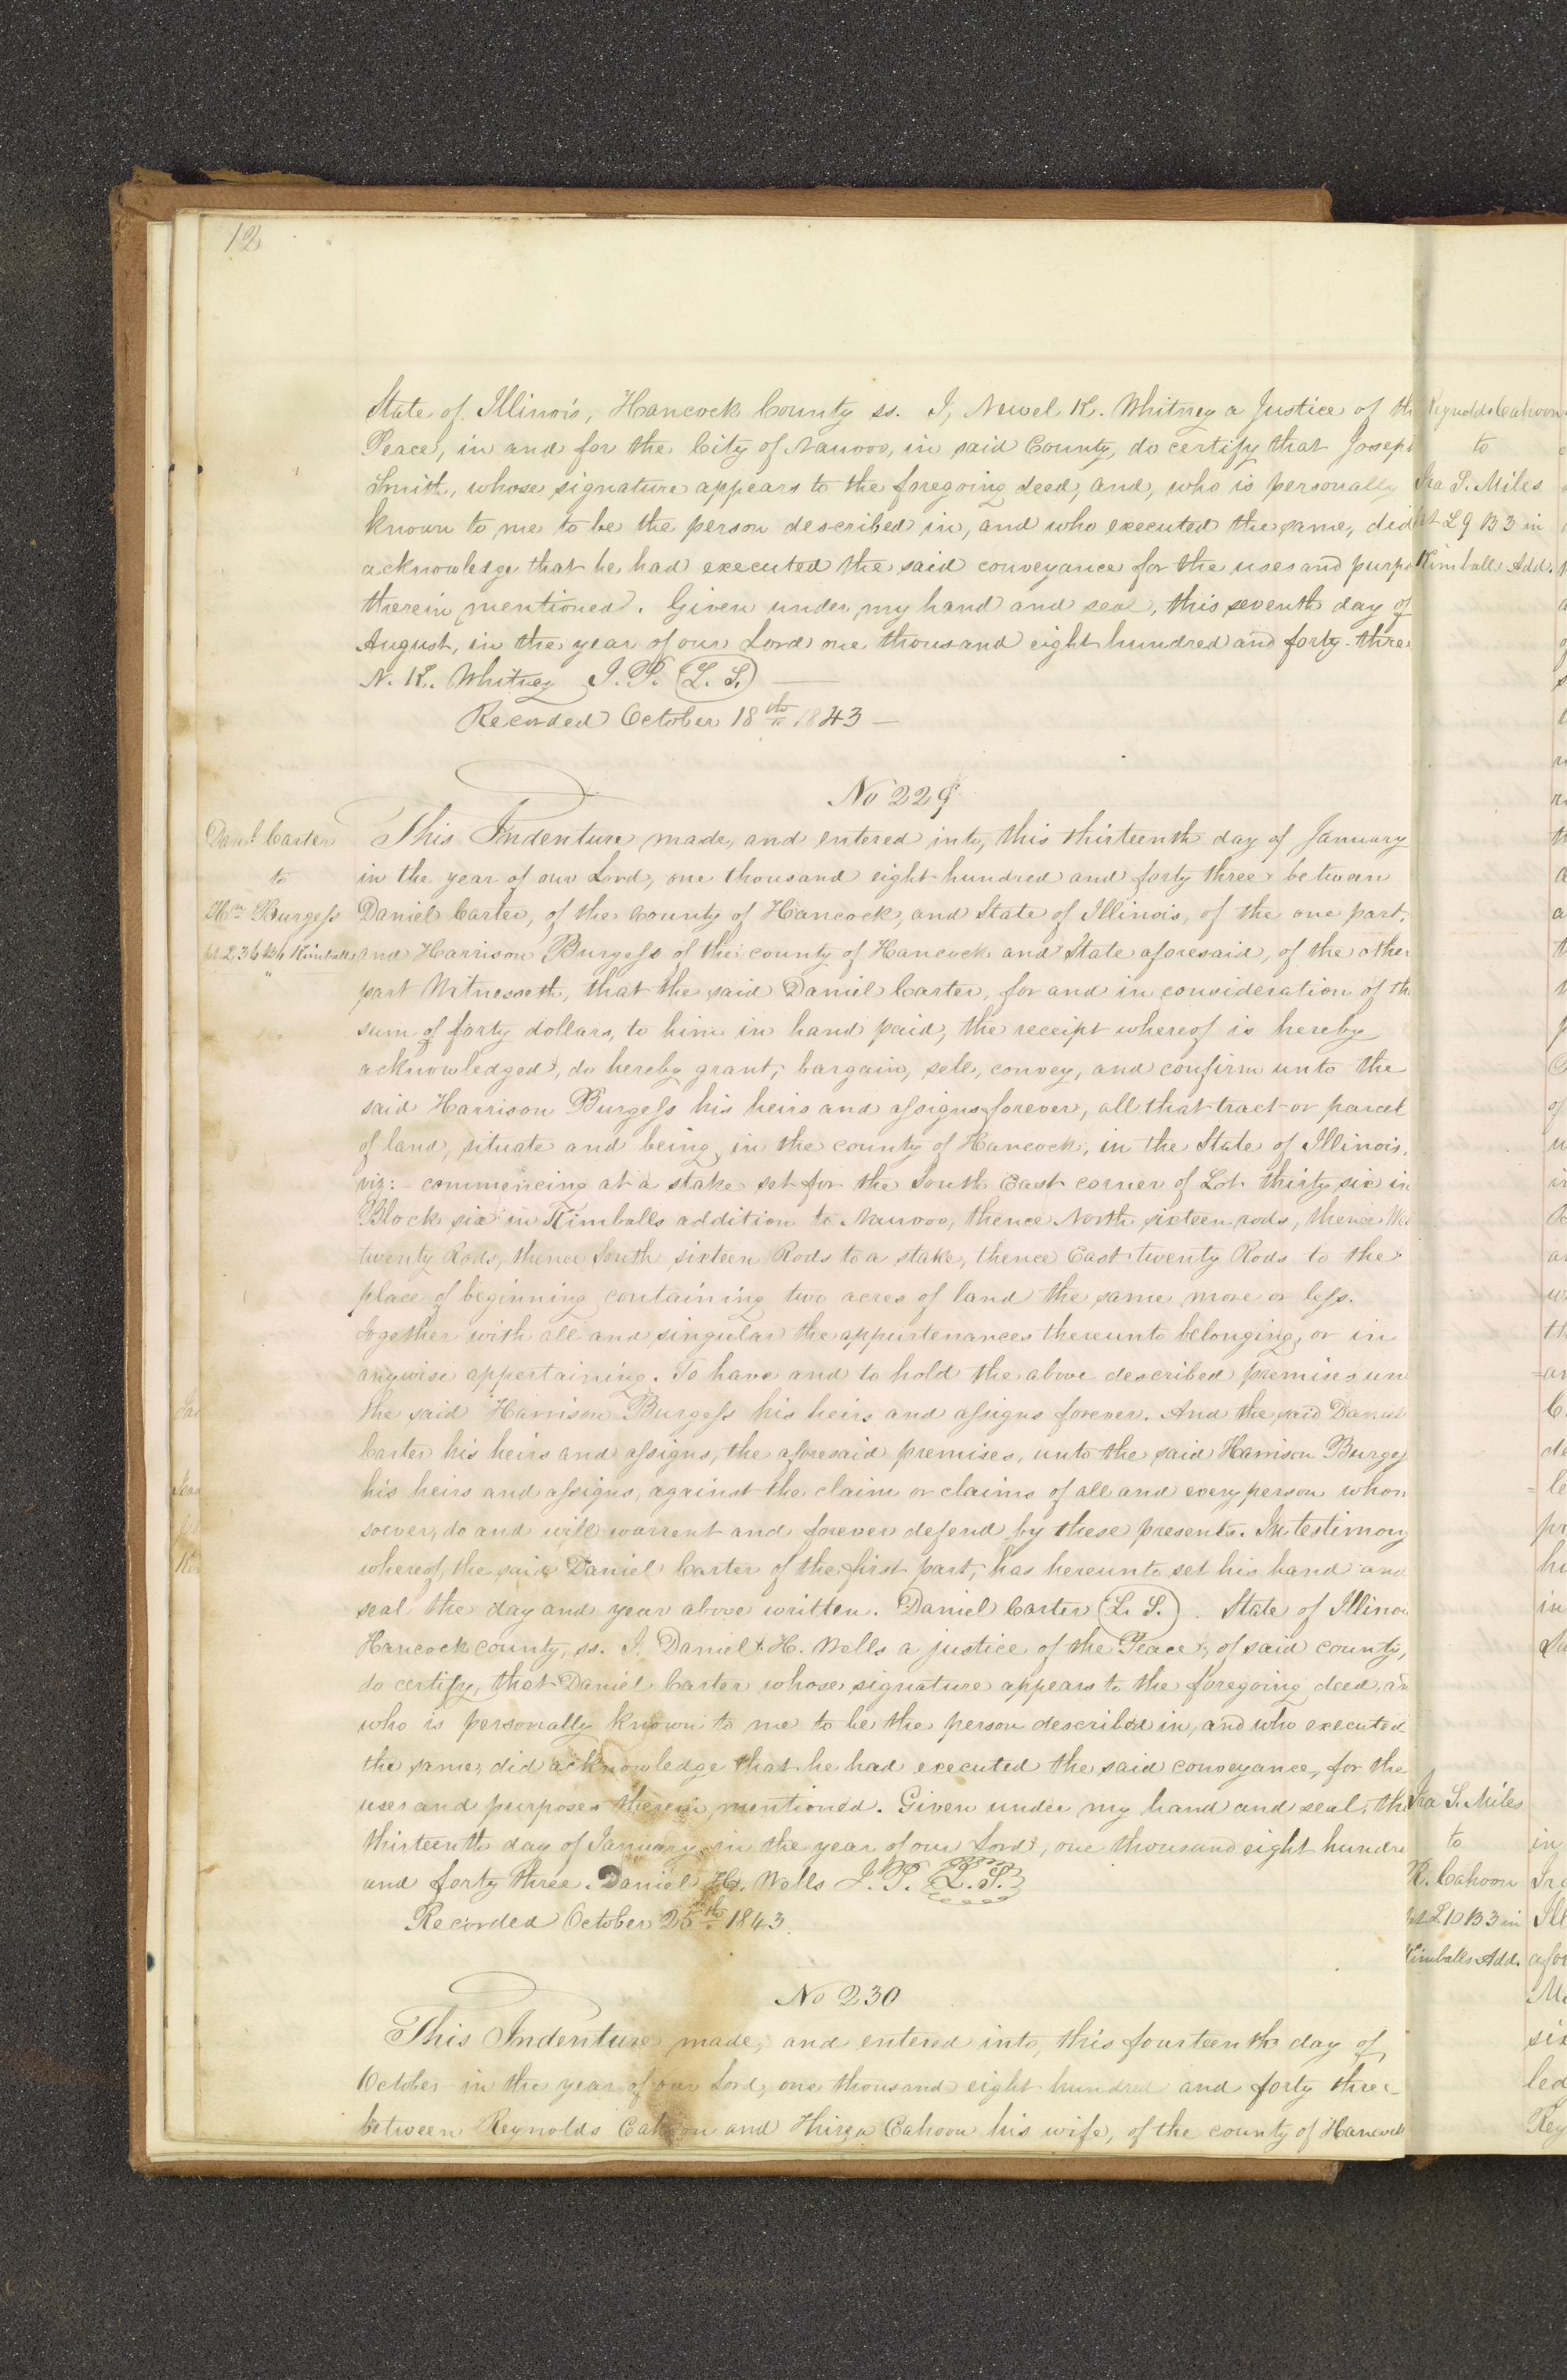 12
State of Illinois, Hancock County ss. I, Newel K. Whitney a Justice of th
Peace, in and for the City of Nauvoo, in said County, do certify that Joseph
Smith, whose signature appears to the foregoing deed, and, who is personally
known to me to be the person described in, and who executed the same, did
acknowledge that he had executed the said conveyance for the uses and purpo
therein mentioned. Given under my hand and seal, this seventh day of
August, in the year of our Lord one thousand eight hundred and forty-three
N. K. Whitney J. P. (L. S.)
Recorded October 18th 1843 —
No 229
Danl. Carter
to
Hn Burgess
pt 2 36 B6 Kimballs
This Indenture made, and entered into, this thirteenth day of January
in the year of our Lord, one thousand eight hundred and forty three between
Daniel Carter, of the county of Hancock, and State of Illinois, of the one part,
and Harrison Burgess of the county of Hancock and State aforesaid, of the other
part Witnesseth, that the said Daniel Carter, for and in consideration of th
sum of forty dollars, to him in hand paid, the receipt whereof is hereby
acknowledged, do hereby grant, bargain, sell, convey, and confirm unto the
said Harrison Burgess his heirs and assigns forever, all that tract or parcel
of land, situate and being in the county of Hancock, in the State of Illinois,
viz:- commencing at a stake set for the South East corner of Lot thirty six in
Block six in Kimballs addition to Nauvoo, thence North sixteen rods, thence We
twenty Rods, thence South sixteen Rods to a stake, thence East twenty Rods to the
place of beginning containing two acres of land the same more or less.
Together with all and singular the appurtenances thereunto belonging, or in
anywise appertaining. To have and to hold the above described premises un
the said Harrison Burgess his heirs and assigns forever. And the said Daniel
Carter his heirs and assigns, the aforesaid premises, unto the said Harrison Burges
his heirs and assigns, against the claim or claims of all and every person whom
soever, do and will warrent and forever defend by these presents. In testimony
whereof, the said Daniel Carter of the first part, has hereunto set his hand and
seal the day and year above written. Daniel Carter (L. S.). State of Illinoi
Hancock county, ss. I, Daniel H. Wells a justice of the Peace, of said county,
do certify, that Daniel Carter whose signature appears to the foregoing deed, and
who is personally known to me to be the person described in, and who executed
the same, did acknowledge that he had executed the said conveyance, for the
uses and purposes therein mentioned. Given under my hand and seal, th
thirteenth day of January in the year of our Lord, one thousand eight hundre
and forty three. Daniel H. Wells J. P. (L. S.)
Recorded October 25th 1843.
No 230
This Indenture made, and entered into, this fourteenth day of
October in the year of our Lord, one thousand eight hundred and forty three
between Reynolds Cahoon and Thirza Cahoon his wife, of the county of Hancock
Reynolds Cahoon
to
Ira S. Miles
pt L 9 B 3 in
Kimball Add.
Ira S. Miles
to
R. Cahoon
pt L 10 B 3 in
Kimballs Add.